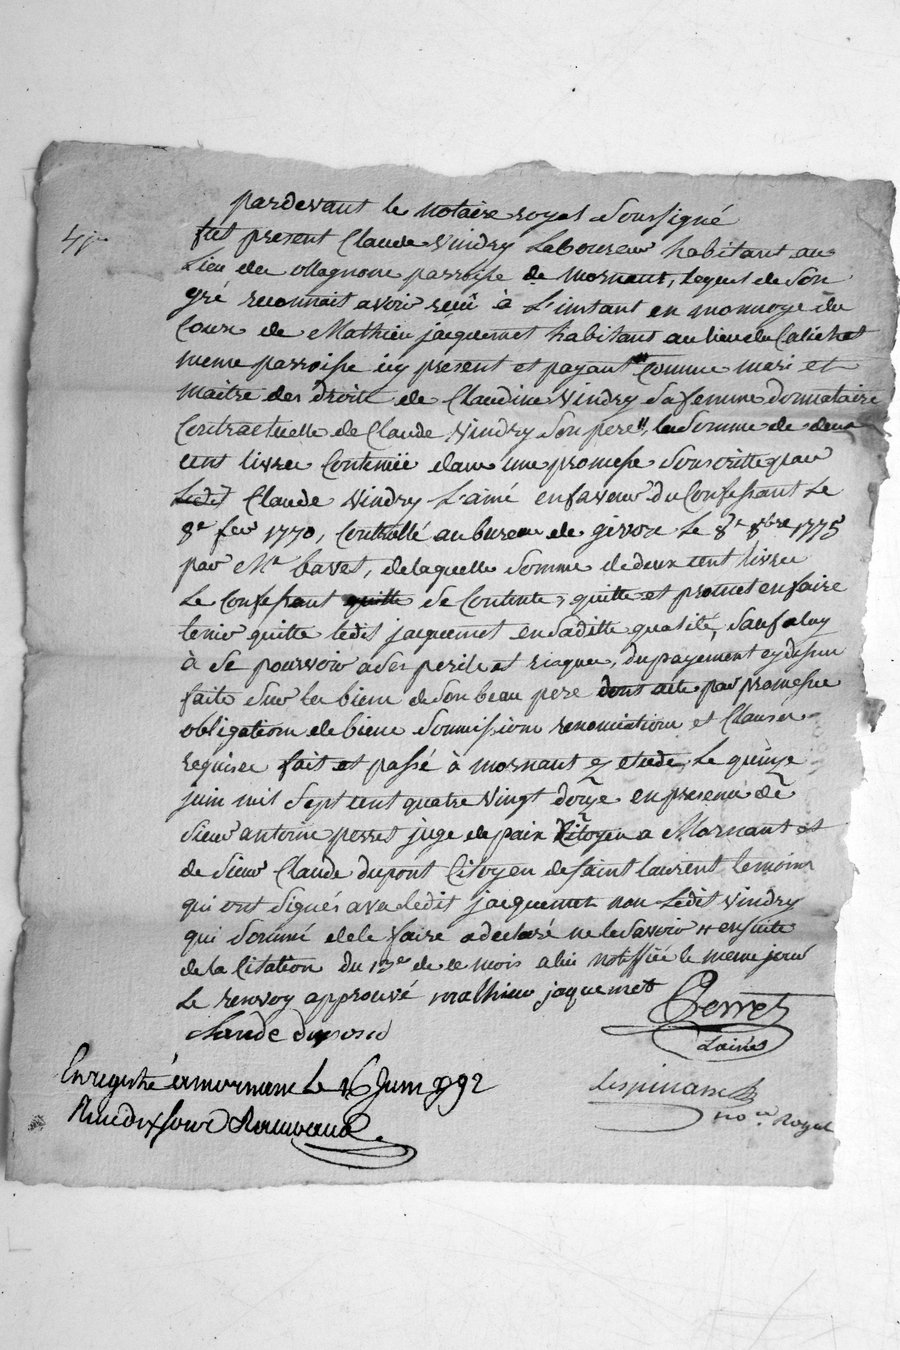 pardevant le notaire royal soussigné
fut present Claude Vindry Laboureur habitant au
Lieu de ollagnon parroisse de mornant, Lequel de Son
gré reconnait avoir reçu à L'instant en monnoye du
Cours de Mathieu jacquemet habitant au lieu du Calichet
meme parroisse icy present et payant " Comme mari et
maitre des droits de Claudine Vindry Sa femme donnataire
Contractuelle de Claude Vindry Son pere ", la Somme de deux
cent livres Contenüe dans une promesse Souscritte par
Ledit Claude Vindry L'ainé en faveur du Confessant Le
8e fevr 1770, Controllé au bureau de givors Le 8e 8bre 1775
par Me bavet, de laquelle Somme de deux cent livres
Le Confessant quitte Se Contente, quitte et promet en faire
tenir quitte ledit jacquemet en Saditte qualité, Sauf a luy
à Se pourvoir a Ses perils et risques, du payement cy dessus
faite Sur les biens de Son beau pere dont acte par promesse
obligations de biens Soumissions renonciations et Clauses
requises fait et passé à mornant ez etude, Le quinze
juin mil Sept cent quatre Vingt douze en presence de
Sieur antoine perret juge de paix Citoyen a Mornant et
de Sieur Claude dupont Citoyen de Saint laurent temoins
qui ont Signés avec ledit jacquemet non Ledit Vindry
qui Sommé de le faire a declaré ne le Savoir " ensuite
de la Citation du 13e de ce mois a lui notiffiée le meme jour
Le renvoy approuvé mathieu jaquemet Perret
Claude dupond Lainé
Enregistré a mornant Le 16 Juin 1792
Lespinasse
Reçu dix sous
nore Royal